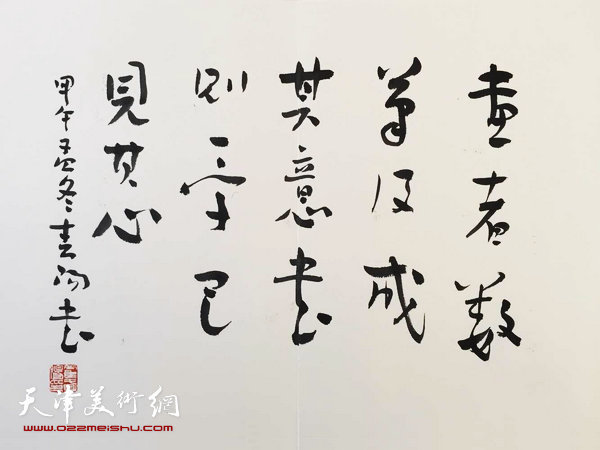 畫者數
筆及成
其意書
则一字已
見其心
甲午孟冬書
天津美術網
www.022meishu.com